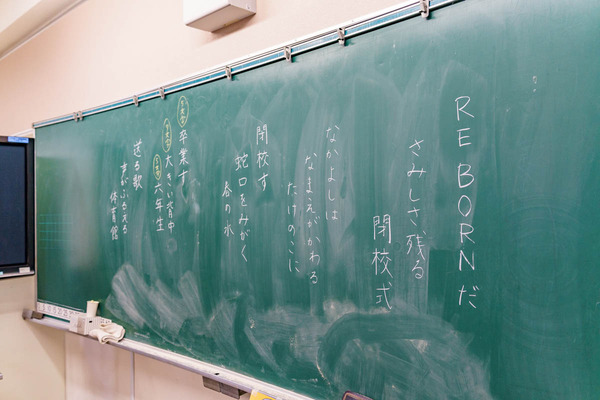 RE BORNだ
さみしさ残る
閉校式
なかよしは
なまえがかわる
たけのこに
閉校す
蛇口をみがく
の水
卒業す
大きい背中
六年生
送る歌
声がふるえる
体育館